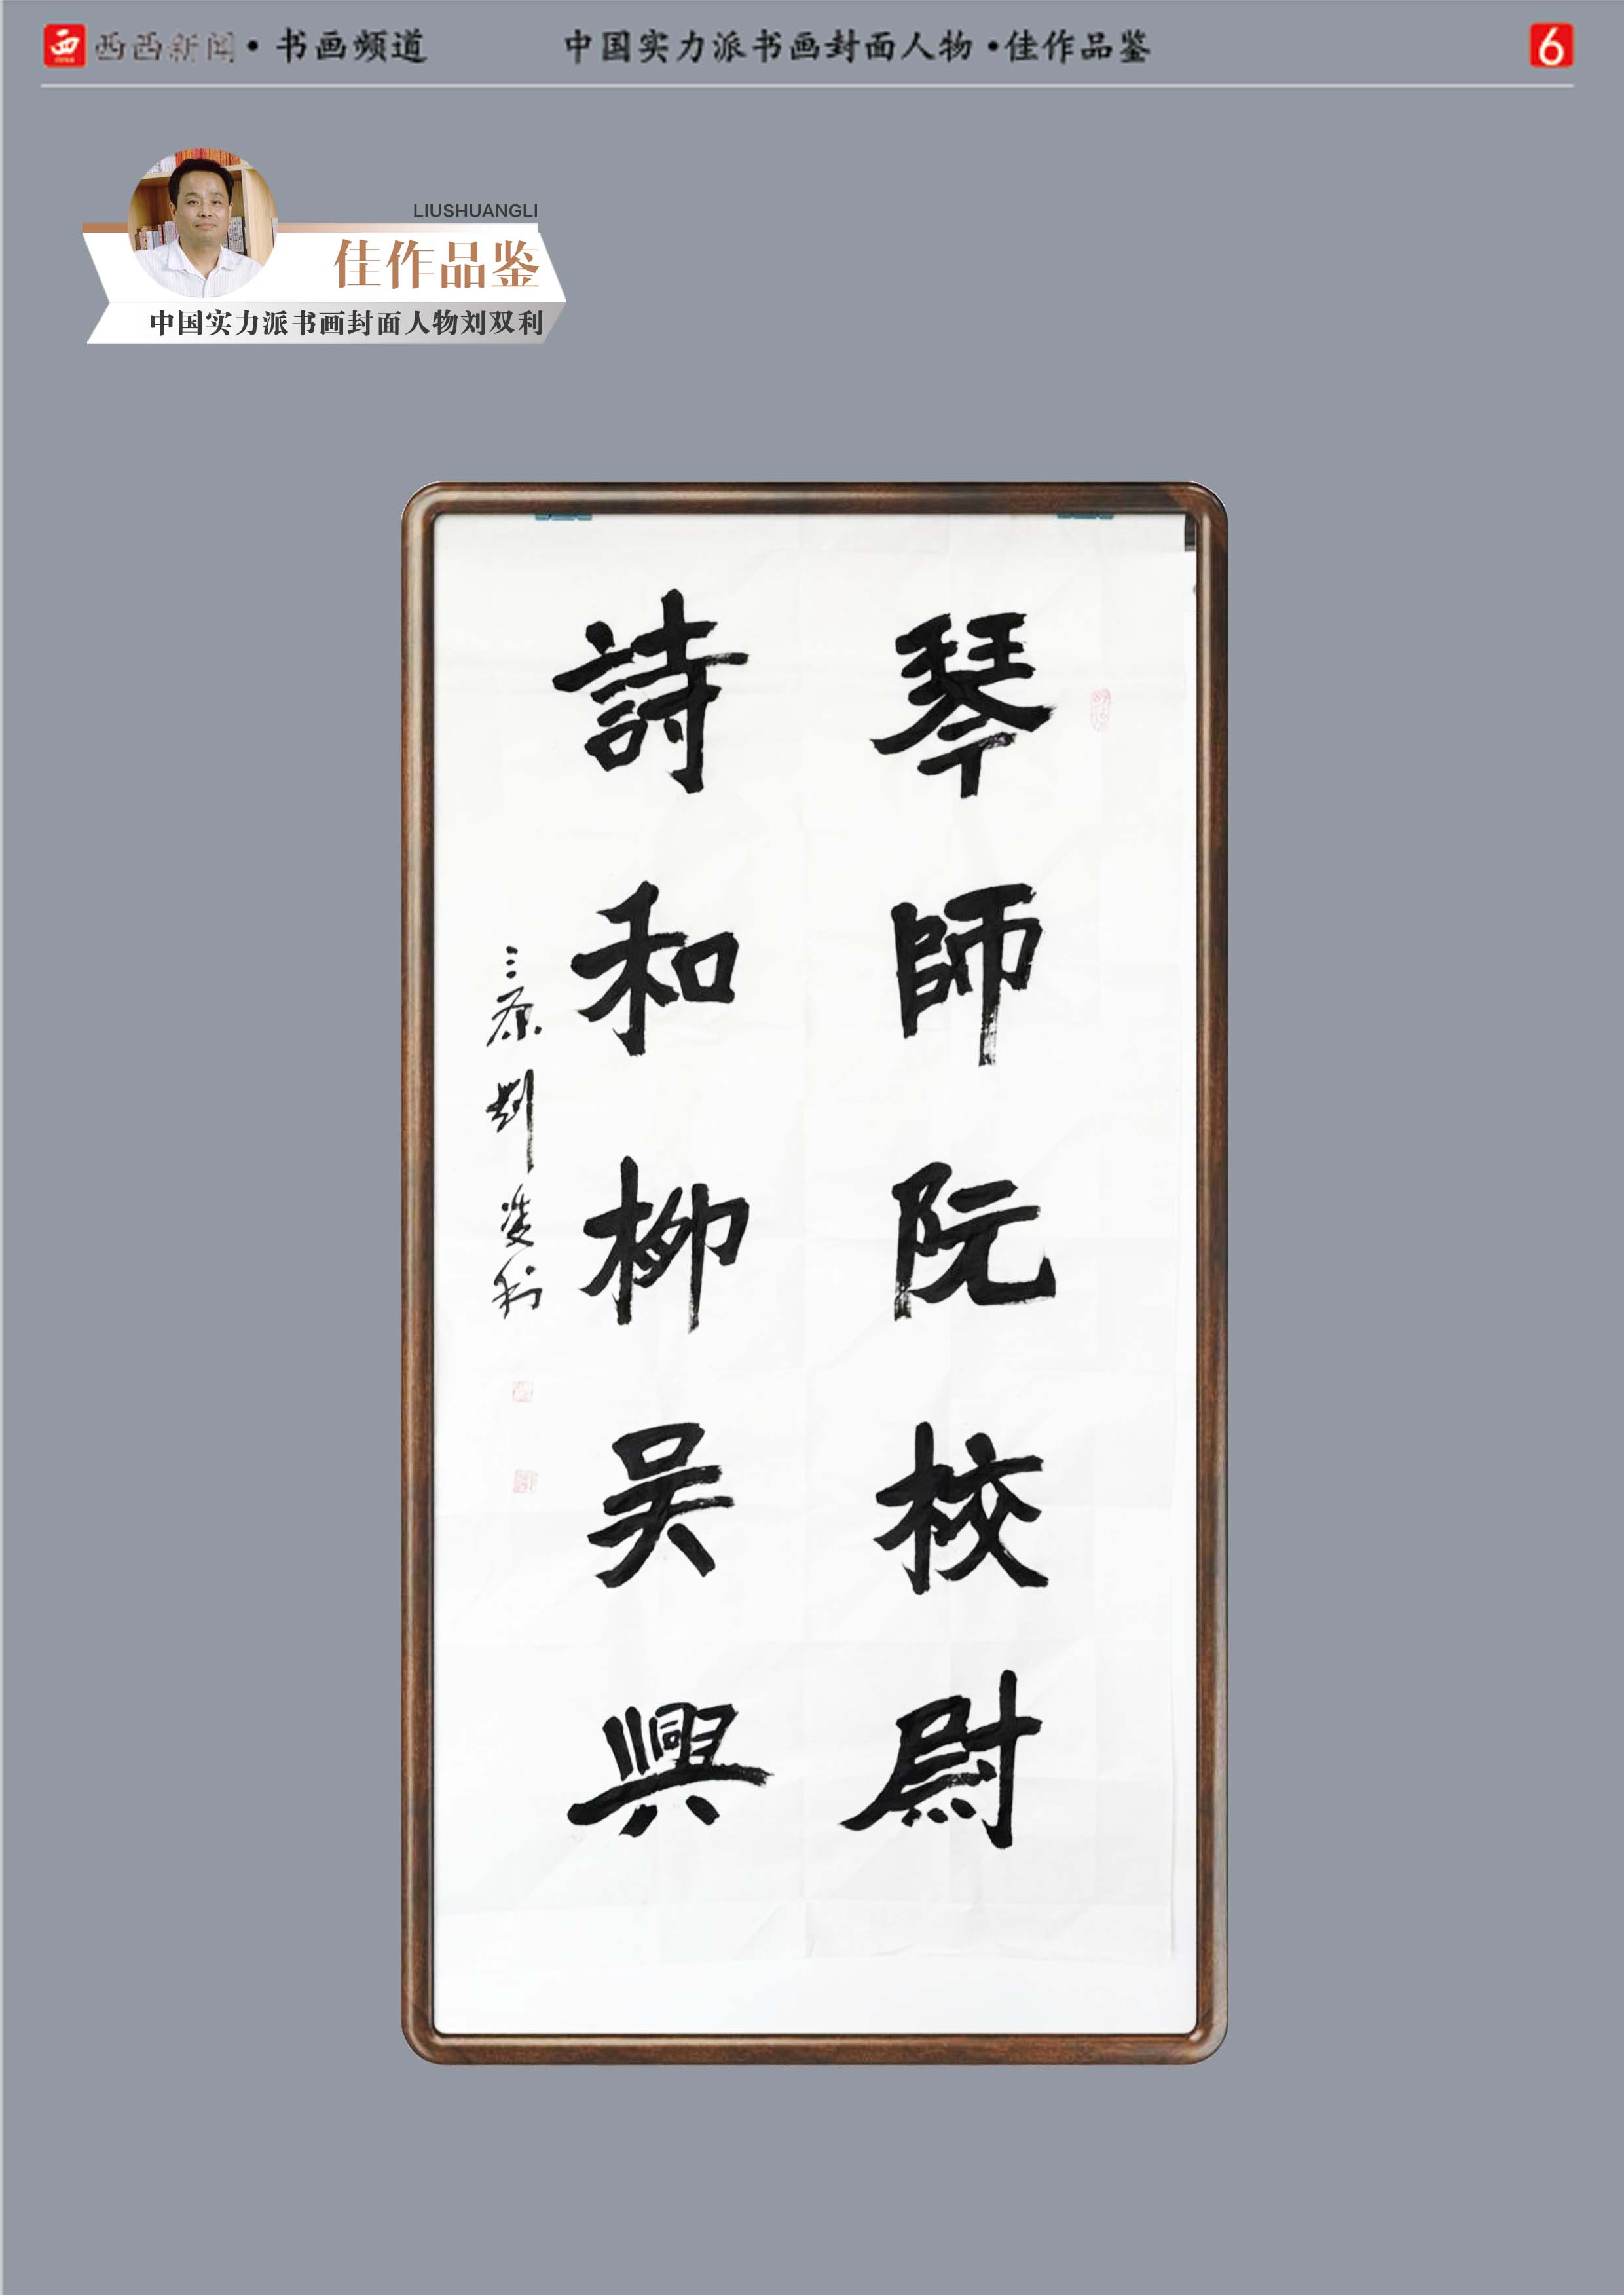 西西新闻·书画频道
中国实力派书画封面人物·佳作品鉴
6
LIUSHUANGLI
佳作品鉴
中国实力派书画封面人物刘双利
琴師阮校尉
詩和柳吴興
三原劉雙利